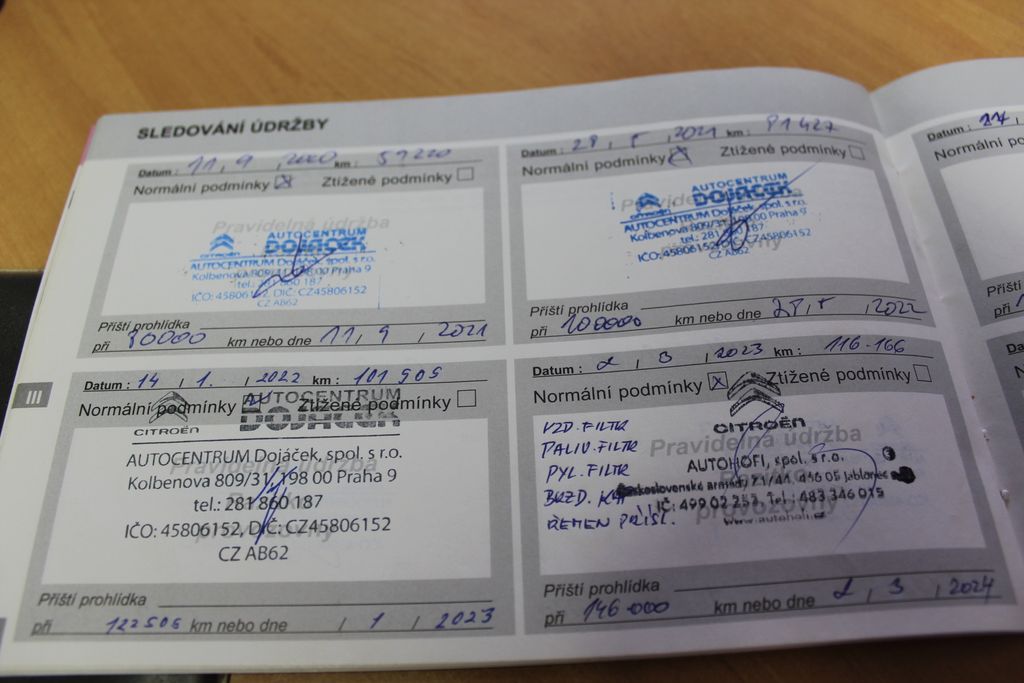 SLEDOVÁNÍ ÚDRŽBY
Datum : 11, 9, 2020 km : 59220
Normální podmínky Ztížené podmínky
Pravidelná údržba
CITROËN AUTOCENTRUM
DOJÁČEK
AUTOCENTRUM Dojáček, spol. s r.o.
Kolbenova 809/31, 198 00 Praha 9
tel.: 281 860 187
IČO: 45806152, DIČ: CZ45806152
CZ AB62
Příští prohlídka
při 80000 km nebo dne 11, 9, 2021
Datum : 28, 5, 2021 km : 81427
Normální podmínky Ztížené podmínky
CITROËN AUTOCENTRUM
DOJÁČEK
AUTOCENTRUM Dojáček, spol. s r.o.
Kolbenova 809/31, 198 00 Praha 9
tel.: 281 860 187
IČO: 45806152, DIČ: CZ45806152
CZ AB62
Příští prohlídka
při 100000 km nebo dne 28, 5, 2022
Datum : 14, 1. , 2022 km : 101 505
Normální podmínky Ztížené podmínky
AUTOCENTRUM
CITROËN DOJÁČEK
AUTOCENTRUM Dojáček, spol. s r.o.
Kolbenova 809/31, 198 00 Praha 9
tel.: 281 860 187
IČO: 45806152, DIČ: CZ45806152
CZ AB62
provozovny
Příští prohlídka
při 122505 km nebo dne / 1 , 2023
Datum : 2, 3, 2023 km : 116-166
Normální podmínky Ztížené podmínky
CITROËN
VZD. FILTR
PALIV. FILTR
PYL. FILTR
BRZD. KAP
ŘEMEN PŘÍSL.
Pravidelná údržba
AUTOHOFI, spol. s r.o.
Československé armády 71/41, 466 05 Jablonec
IČ: 499 02 253, Tel.: 483 346 015
provozovny
www.autohofi.cz
Příští prohlídka
při 146-000 km nebo dne 2, 3, 2024
III
Datum :
Normální
Příští
při